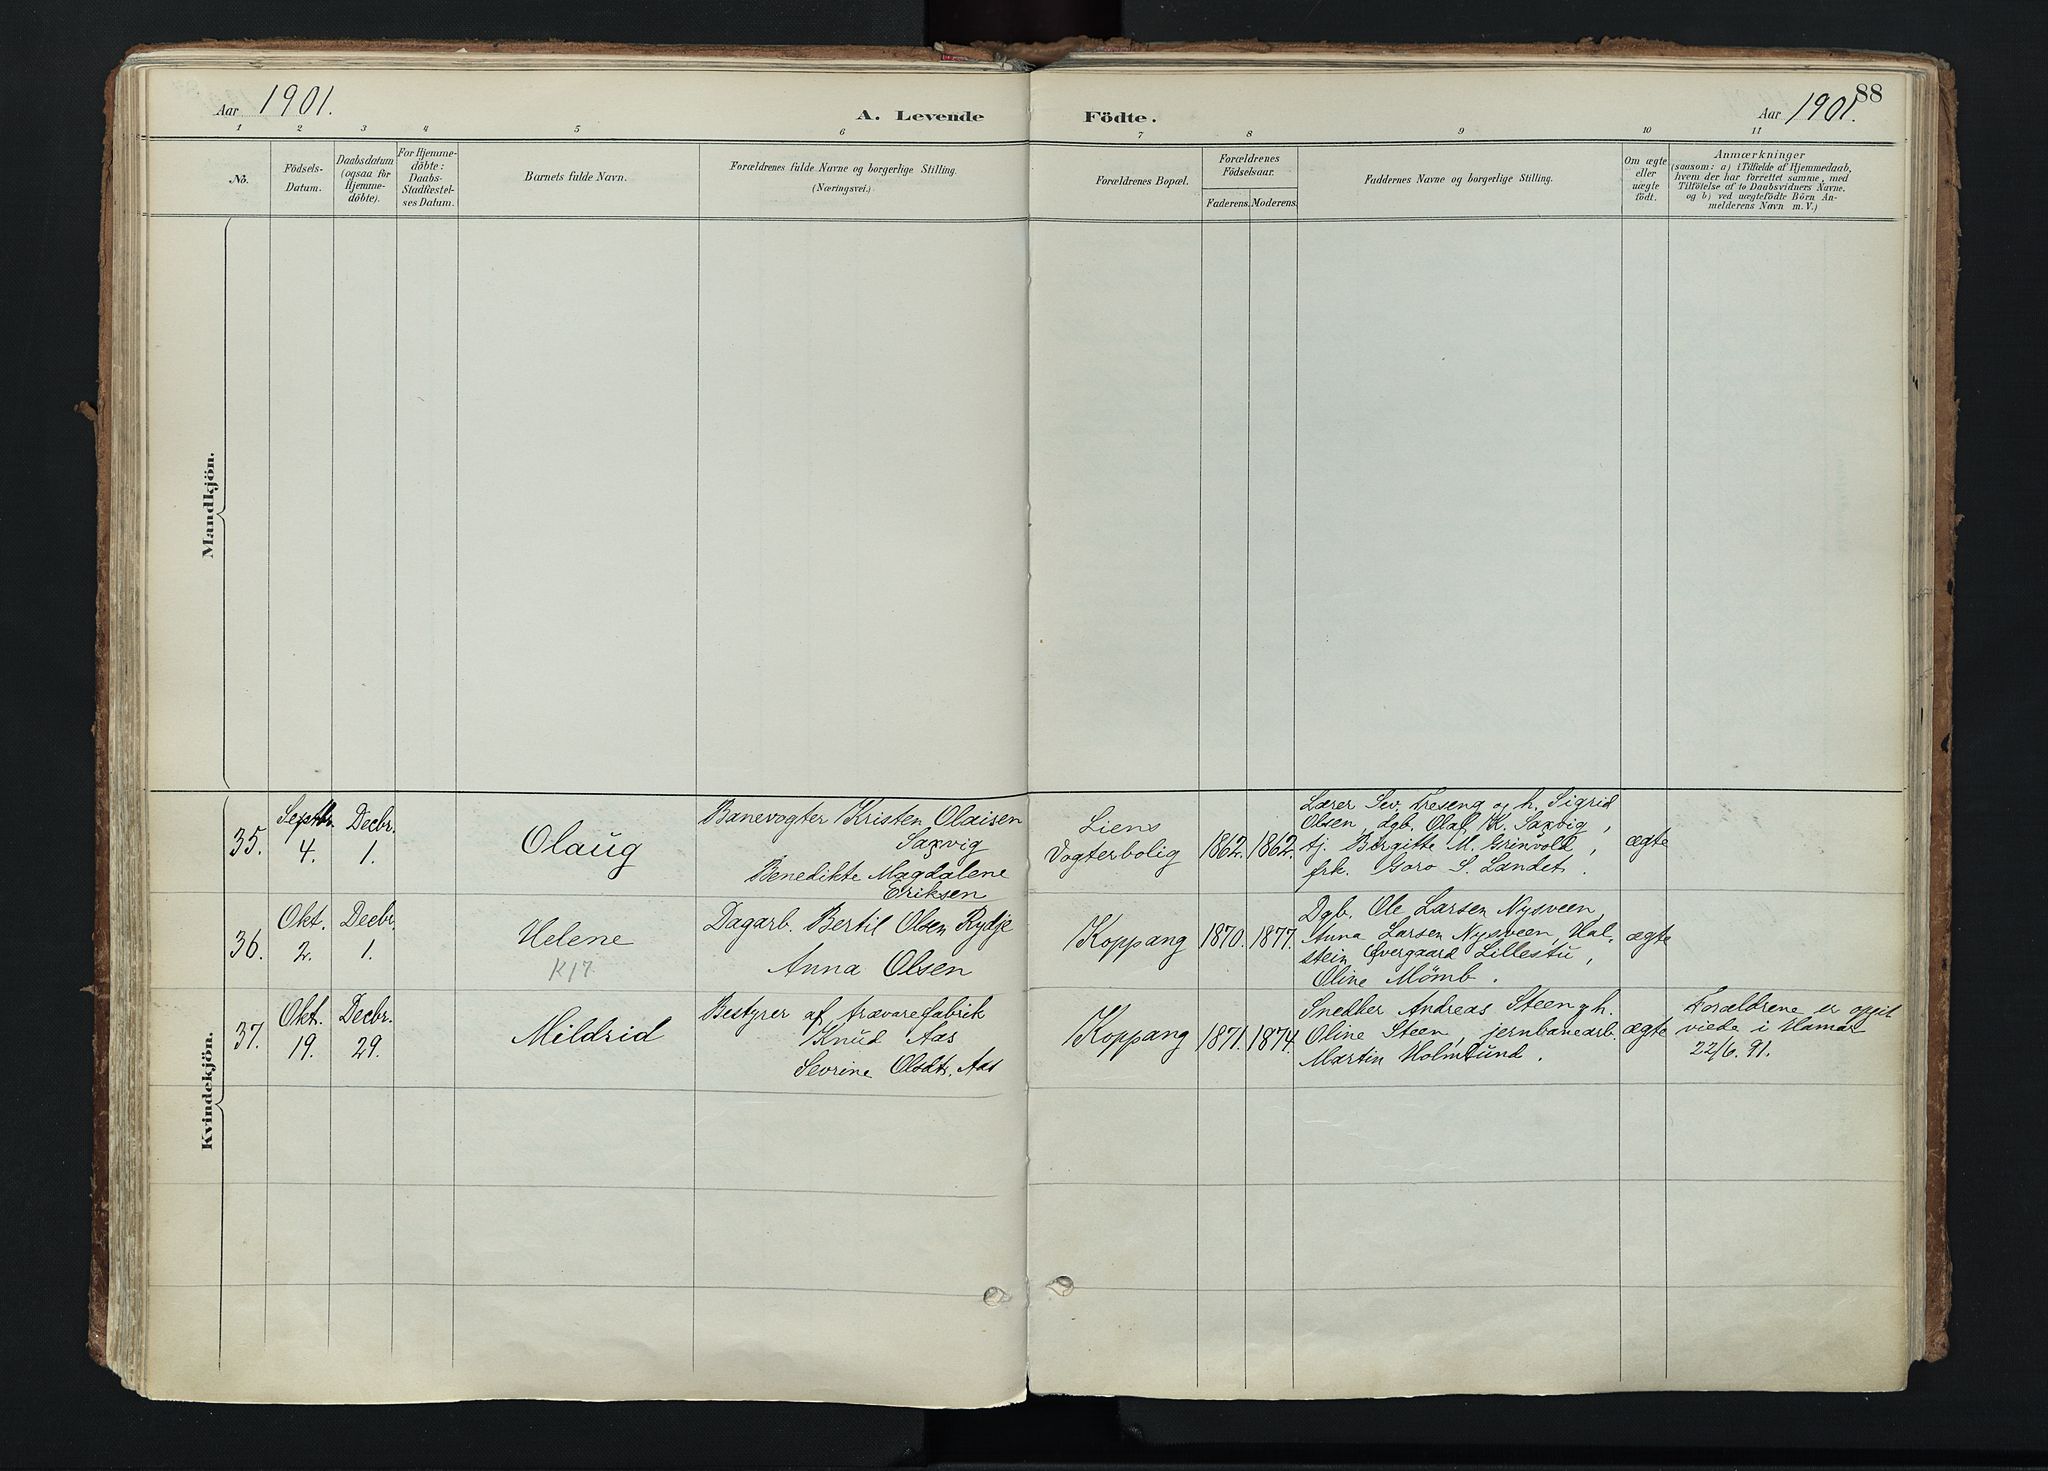 88
Aar 1901.
A. Levende Födte.
Aar 1901.
1 2 3 4 5 6 7 8 9 10 11
No.
Födsels-
Datum.
Daabsdatum
(ogsaa for
Hjemme-
döbte).
For Hjemme-
döbte:
Daabs-
Stadfæstel-
ses Datum.
Barnets fulde Navn.
Forældrenes fulde Navne og borgerlige Stilling.
(Næringsvei.)
Forældrenes Bopæl.
Forældrenes
Födselsaar.
Faderens. Moderens.
Faddernes Navne og borgerlige Stilling.
Om ægte
eller
uægte
födt.
Anmærkninger
(saasom: a) i Tilfælde af Hjemmedaab,
hvem der har forrettet samme, med
Tilföielse af to Daabsvidners Navne.
og b) ved uægtefödte Börn An-
melderens Navn m. V.)
Mandkjön.
Kvindekjön.
35.
Septbr.
4.
Decbr.
1.
Olaug
Banevogter Kristen Olaisen
Saxvig
Benedikte Magdalene
Eriksen
Liens
Vogterbolig
1862. 1862.
Lærer Sev. Treseng og h. Sigrid
Olsen, dgb. Olaf K. Saxvig,
tj. Birgitte M. Grinvold,
frk. Goro S. Landet.
ægte
36.
Okt.
2.
Decbr.
1.
Helene
K17.
Dagarb. Bertil Olsen Rydje
Anna Olsen
Koppang
1870. 1877.
Dgb. Ole Larsen Nysveen,
Anna Larsen Nysveen, Hal-
stein Øvergaard Lillestu,
Oline Mømb.
ægte
37.
Okt.
19.
Decbr.
29.
Mildrid
Bestyrer af trævarefabrik
Knud Aas
Sevrine Olsdtr. Aas
Koppang
1871. 1874.
Snedker Andreas Steen g h.
Oline Steen, jernbanearb.
Martin Holmlund.
ægte
Forældrene er opgit
viede i Hamar
22/6. 91.